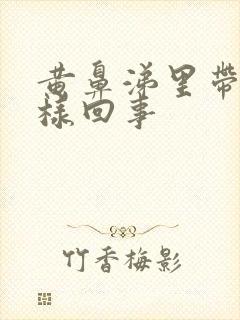 黄鼻涕里带
样回事
竹香梅影